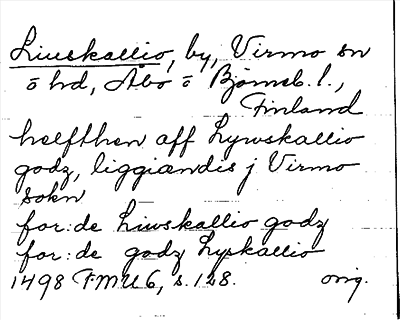 Liuskallio, by, Virmo sn
o hd, Åbo o Björneb. l.,
Finland
helfthen aff Lywskallio
godz, liggiandis j Virmo
sokn
for:de Liwskallio godz
for:de godz Lyskallio
1498 FMU 6, s. 128. orig.